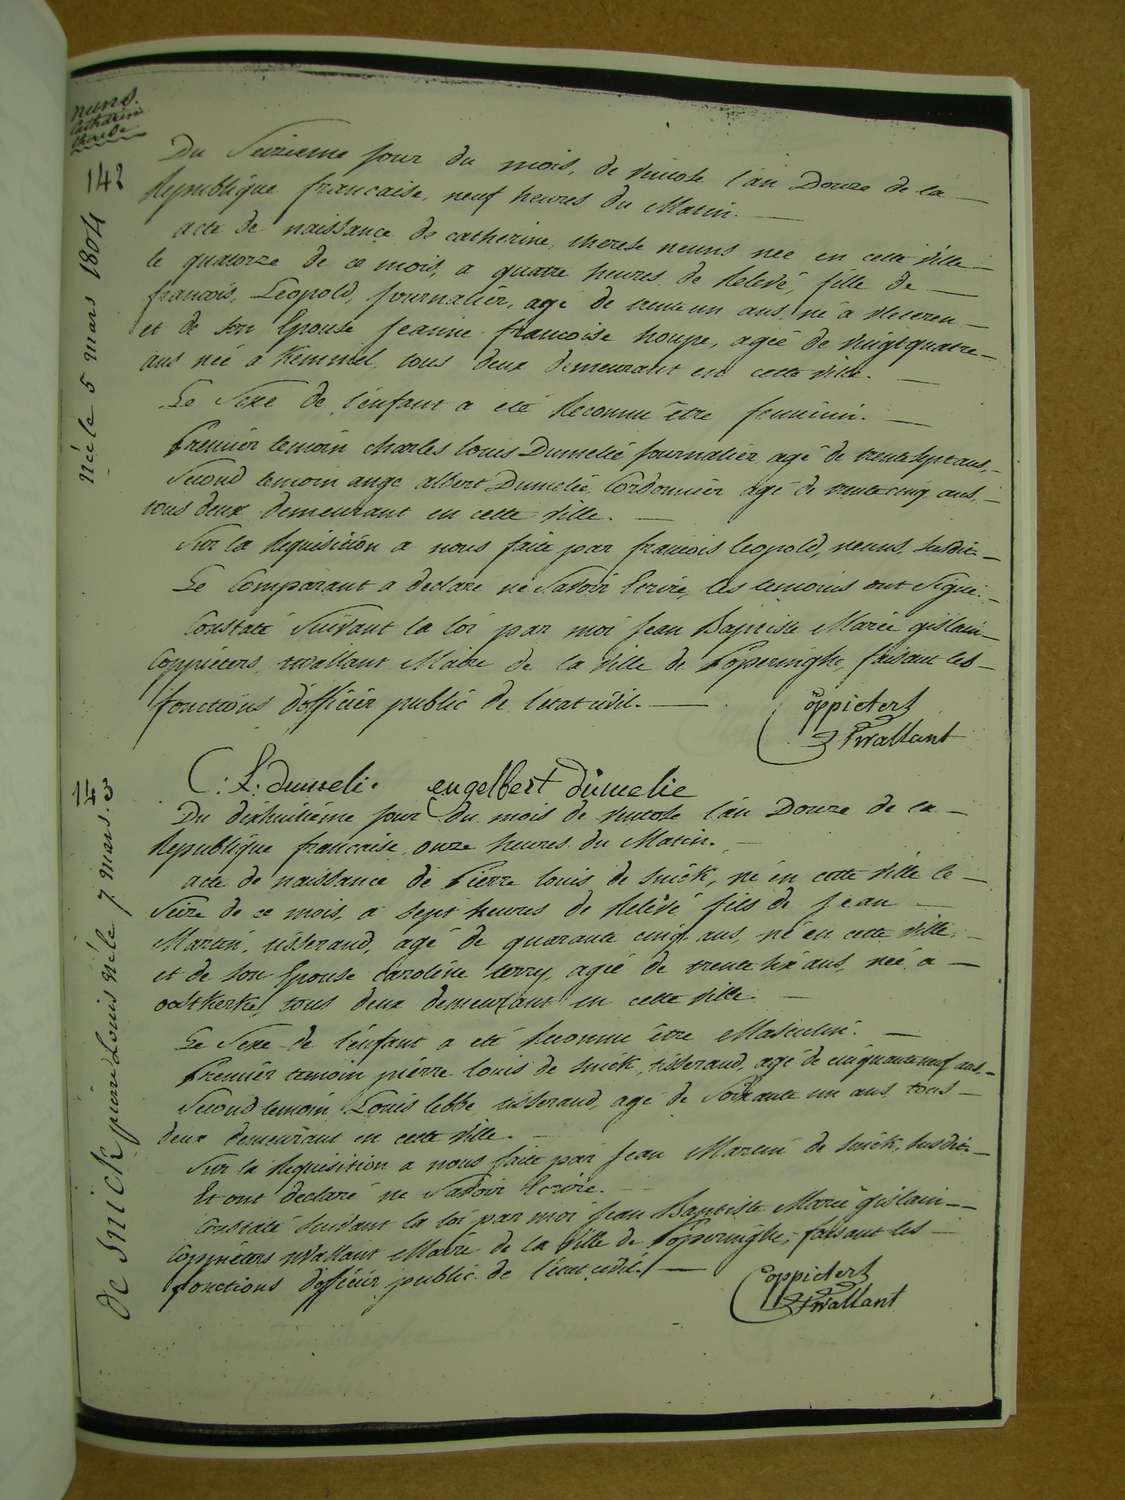 nuns.
Catharine
therese
142
Née le 5 mars 1804
Du Seizieme jour du mois, de ventose l'an Douze de la
Republique francaise, neuf heures du Matin.
acte de naissance de catherine, therese neuns née en cette ville
le quatorze de ce mois, a quatre heures de Relevé, fille de
francois, Léopold, journalier, agé de trente un ans, né à
et de son Epouse Jeanne francoise houpe, agée de vingt quatre
ans née à Kemmel, tous deux demeurant en cette ville.
Le Sexe de l'enfant a eté Reconnu être feminin.
Premier temoin charles louis Dumelié journalier agé de trente sept ans,
Second temoin ange albert Dumelie, Cordonnier agé de trente cinq ans,
tous deux demeurant en cette ville.
Sur la Requisition a nous faite par francois leopold, neuns, susdit
Le Comparant a declaré ne Savoir Ecrire, les temoins ont Signé.
Constaté Suivant la loi par moi Jean Baptiste Marie gislain
Coppieters, wallant Maire de la ville de Poperinghe, faisant les
fonctions d'officier public de l'etat civil.
Coppieters
Twallant
C: L: dumeli. engelbert dumelie
143
De Snick pierre Louis né le 7 mars.
Du dixhuitieme jour du mois de ventose l'an Douze de la
Republique francaise, onze heures du Matin.
acte de naissance de Pierre louis de snick, né en cette ville le
Seize de ce mois, a sept heures de Relevé fils de Jean
Martin, tisserand, agé de quarante cinq ans, né en cette ville,
et de son Epouse caroline terry, agée de trente six ans, née a
oostkerke, tous deux demeurant en cette ville.
Le Sexe de l'enfant a eté Reconnu être Masculin.
Premier temoin pierre louis de snick, tisserand, agé de cinquante neuf ans,
Second temoin Louis lebbe tisserand, agé de Soixante un ans, tous
deux demeurant en cette ville.
Sur la Requisition a nous faite par Jean Martin de snick, susdit
Et ont declaré ne Savoir Ecrire.
Constaté Suivant la loi par moi Jean Baptiste Marie gislain
Coppieters wallant Maire de la Ville de Poperinghe, faisant les
fonctions d'officier public de l'etat civil.
Coppieters
Twallant